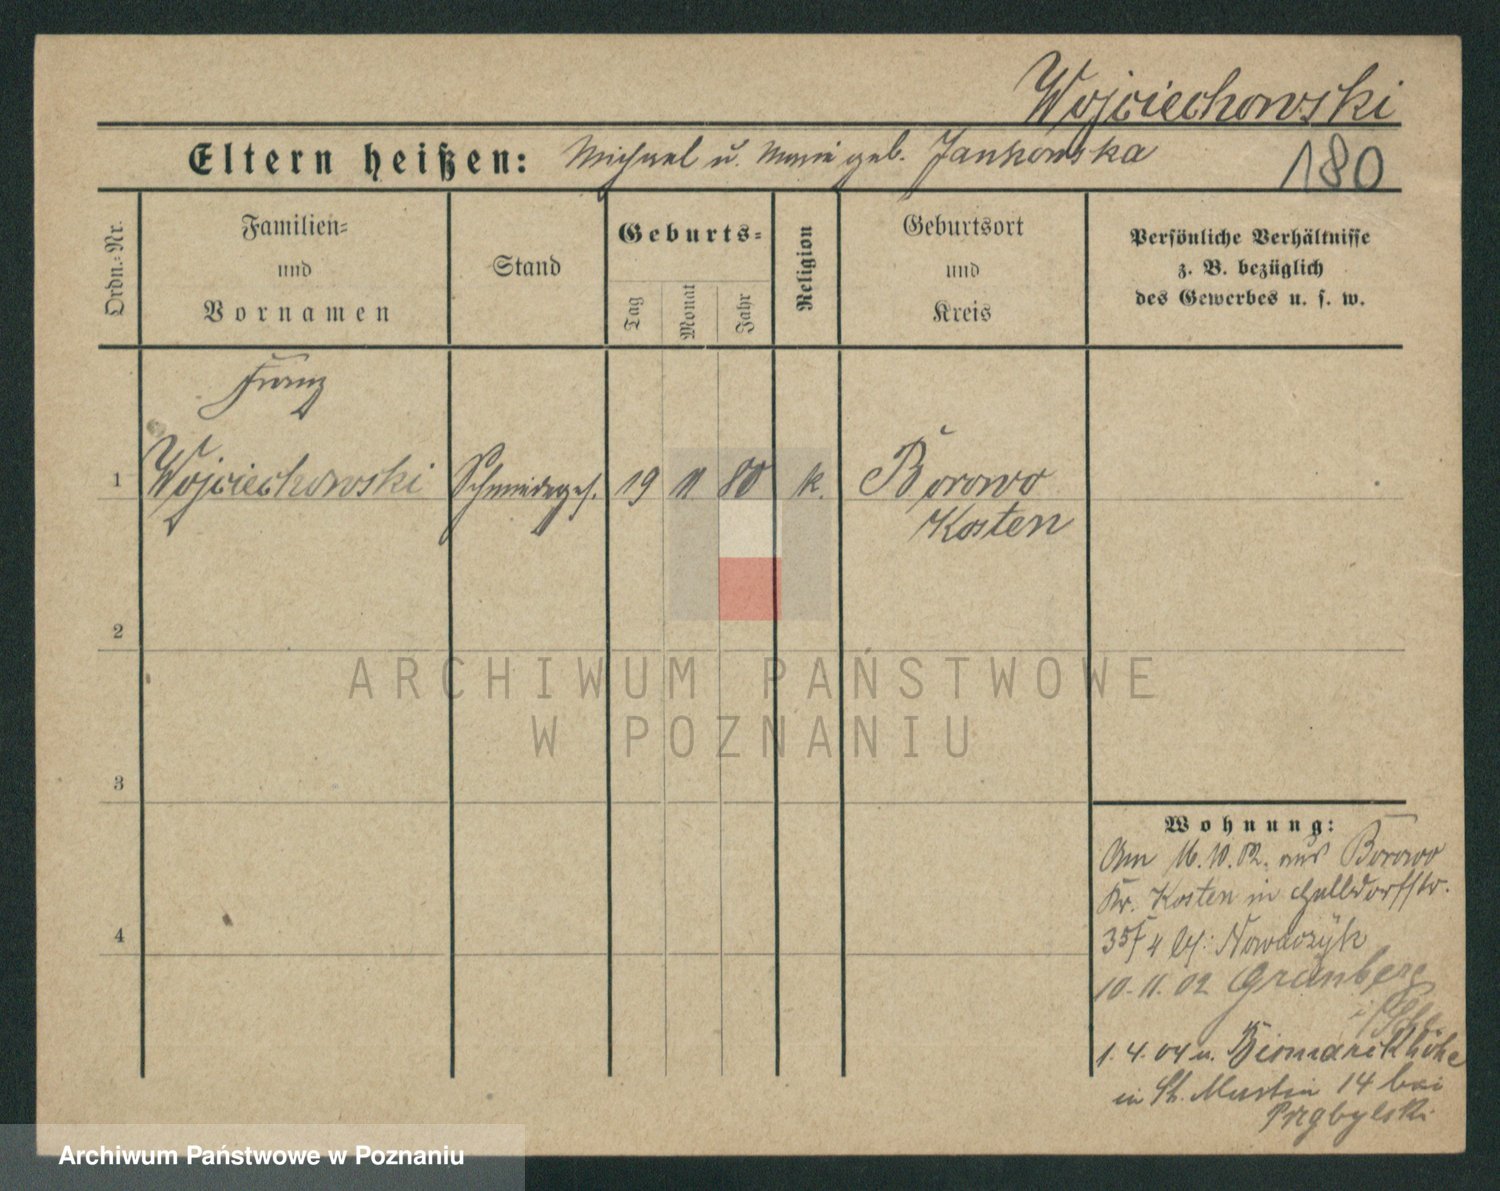 Wojciechowski
Eltern heißen: Michael u. Marie geb. Jankowska 180
Ordn.-Nr.
Familien-
und
Vornamen
Stand
Geburts-
Tag
Monat
Jahr
Religion
Geburtsort
und
Kreis
Persönliche Verhältnisse
z. B. bezüglich
des Gewerbes u. s. w.
Franz
1 Wojciechowski Schmiedeges. 19 11 80 k. Borowo
Kosten
2
3
4
Wohnung:
Am 16.10.02. aus Borowo
Kr. Kosten in
35 4 bei: Nowaczyk
10.11.02 Grünberg
i/Schl.
1.4.04 v. Bismarckhöhe
in St. Martin 14 bei
Przybylski
ARCHIWUM PAŃSTWOWE
W POZNANIU
Archiwum Państwowe w Poznaniu